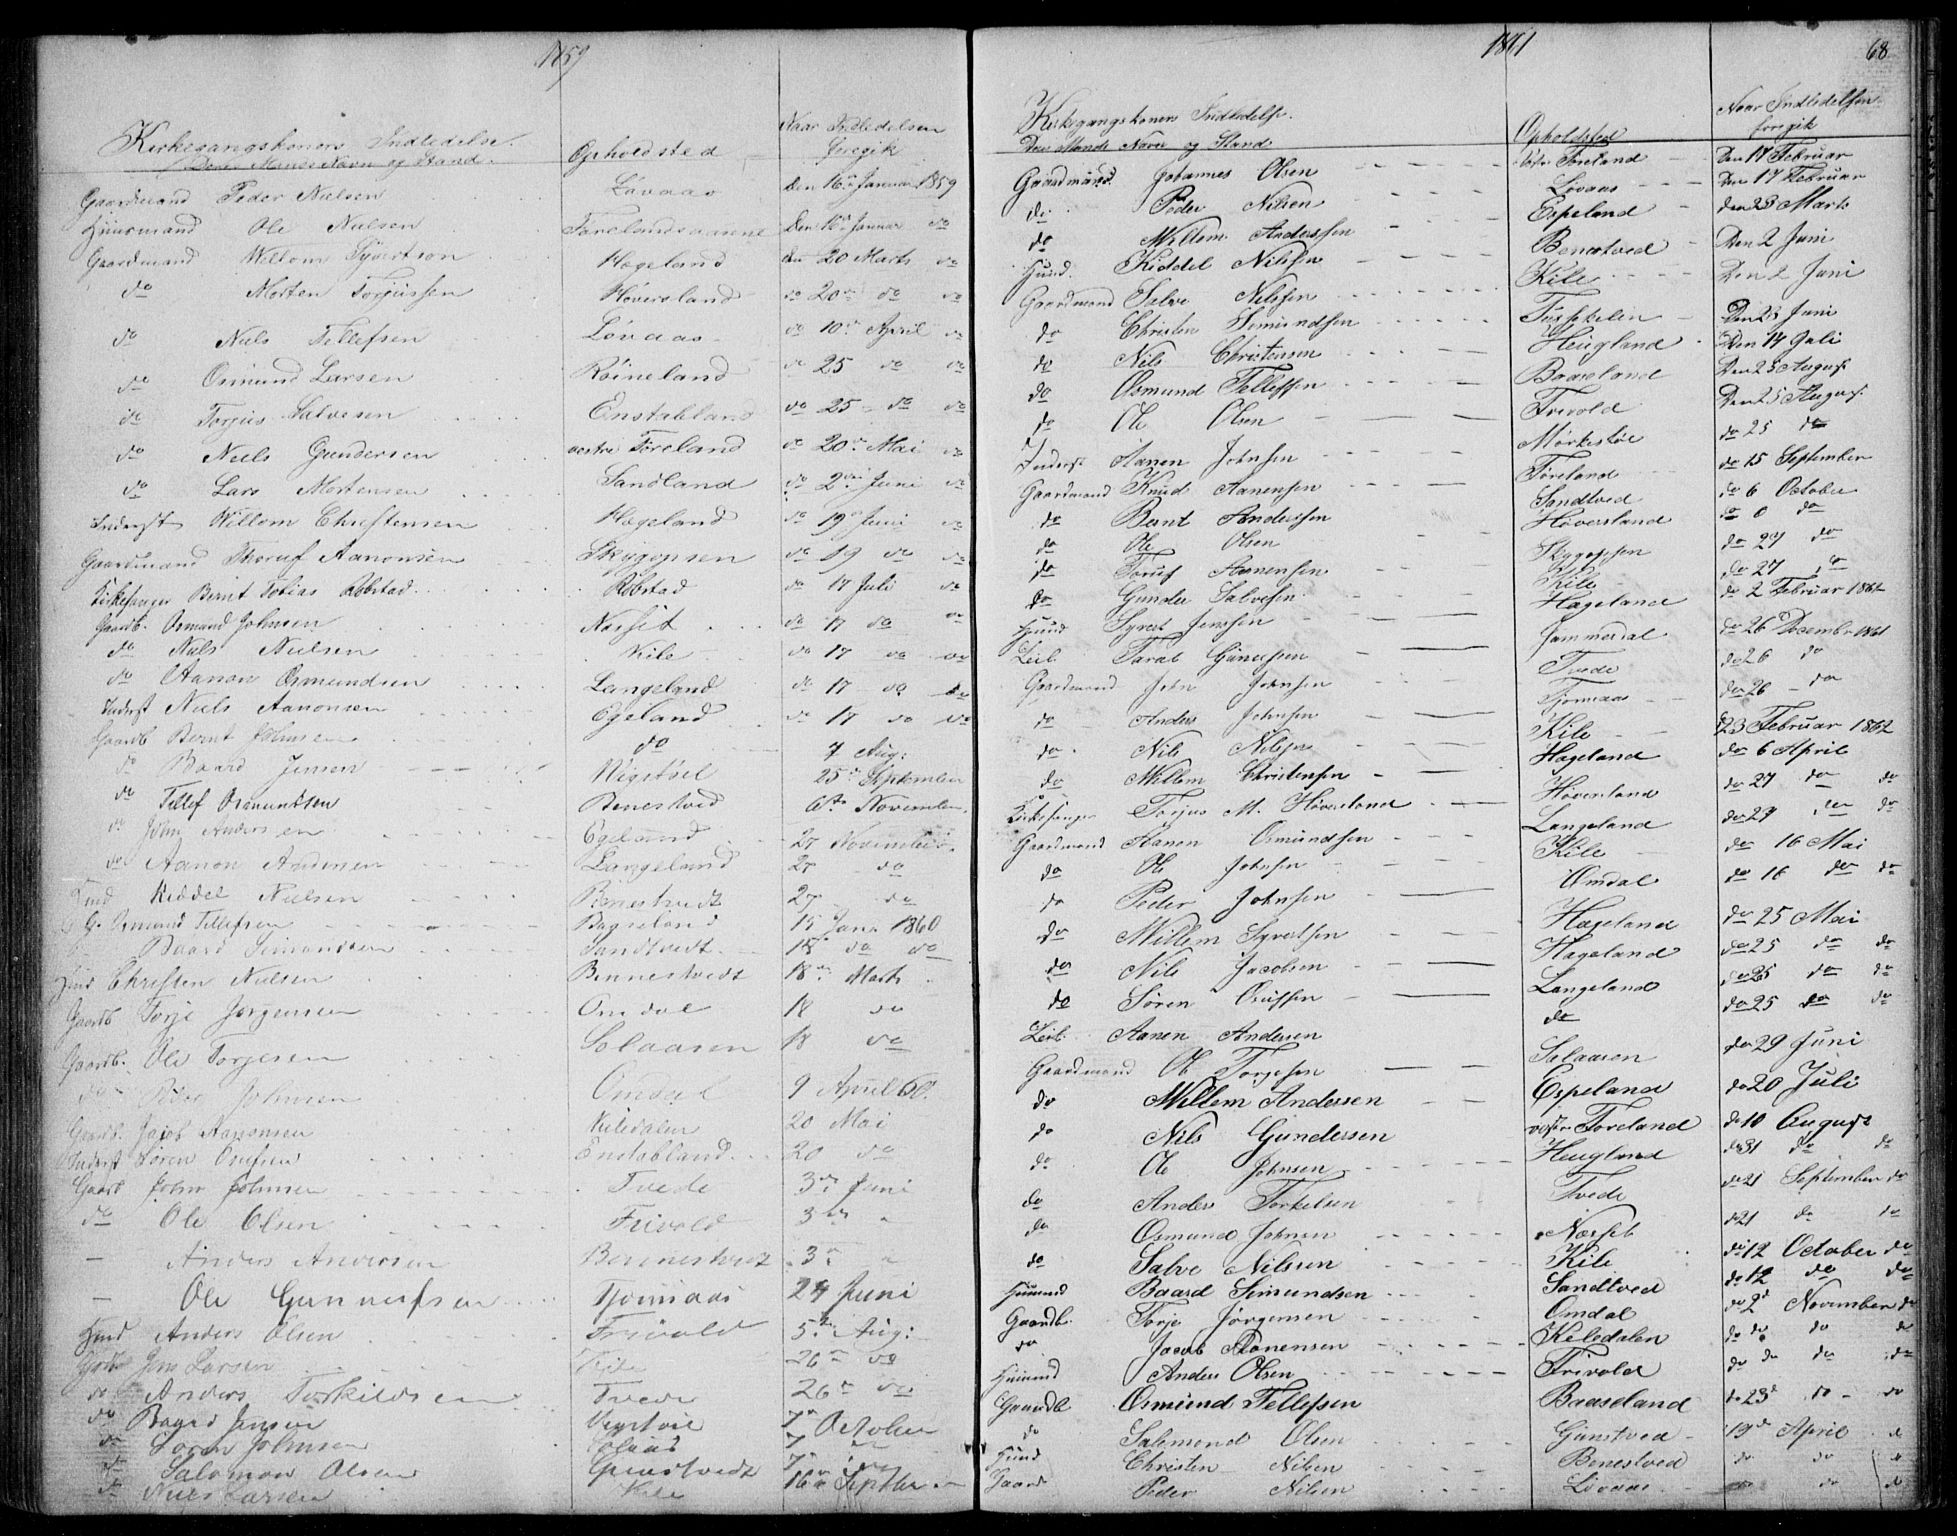 1859
Kirkegangskoners Indledelse. Opholdsted Naar Indledelsen foregik
Deres Mands Navn og Stand.
Gaardmand Peder Nielsen Løvaas Den 16de Januar 1859
Huusmand Ole Nielsen Den 16de Januar do
Gaardmand Willom Syvertsen Hageland den 20 Marts do
do Morten Torjussen Høversland do 20de do do
do Niels Tellefsen Løvaas do 10de April do
do Osmund Larsen Røineland do 25 do do
do Torjus Salvesen Enstabland do 25 do do
do Niels Gundersen vestre Føreland do 20de Mai do
do Lars Mortensen Sandland do 2den Juni do
Inderst Willom Christensen Hageland do 19 Juni do
Gaardmand Thoruf Aanonsen Skygopsen do 19 do do
Kirkesanger Bernt Tobias Robstad Robstad do 17 Juli do
Gaardb. Osmund Johnsen Næsset do 17 do do
do Niels Nielsen Kile do 17 do do
do Aanon Osmundsen Langeland do 17 do do
Inderst Niels Aanonsen Egeland do 17 do do
Gaardb Bernt Johnsen do 7 Aug:
do Baard Jensen 25de September
do Tellef Osmundsen Benestved 6te November
do John Andersen Egeland 27 November
do Aanon Langeland 27 do
Huud Kiddel Nielsen Benestvedt 27 do
G. Osmund Tellefsen Baaseland 15 Janr 1860
Baard Simondsen Sandtvedt 15 do do
Huus Christen Nielsen Bennestvedt 18de Marts
Gaardb Torje Jørgensen Omdal 18 do
Gaardb. Ole Torjesen Solaasen 18 do
do Peder Johnsen Omdal 9 April 60.
Gaardb. Jacob Aanonsen Kiledalen 20 Mai
Inderst Søren Osufsen Enstabland 20 do
Gaardb John Johnsen Tvede 3de Juni
do Ole Olsen Frivold 3de "
— Anders Andersen Bennestvedt 3de "
— Ole Gunnufsen Tjomaas 24 Juni
Huud Anders Olsen Frivold 5te Aug:
Gaardb Jens Larsen Kile 26de do
do Anders Torkildsen Tvede 26de do
do Baard Jensen 7de October
do Søren Johnsen Solaas 7
do Salomon Olsen Gunstvedt 7de
do Niels Larsen Kile 16de Septbr
1861 68
Kirkegangskonen Indledelse. Opholdsted Naar Indledelsen foregik
Den Mands Navn og Stand
Gaardmand Johannes Olsen Føreland Den 17 Februar
do Peder Nilsen Løvaas Den 17 Februar
do Willem Anderssen Espeland den 23 Marts
Huusd. Kiddel Nilssen Benestved Den 2 Juni
Gaardmand Salve Nilssen Kile Den 2 Juni
do Christen Simundsen Den 23 Juni
do Nils Christensen Heugland Den 14 Juli
do Osmund Tellefsen Baaseland Den 25 August
do Ole Olsen Frivold Den 25 August
Inderst Aanen Johnsen Mørkestøe do 25 do
Gaardmand Knud Aanensen Føreland do 15 September
do Bernt Anderssen Sandtved do 6 October
do Ole Olsen Høversland do 6 do
do Toruf Aanensen Skygopsen do 27 do
do Gunder Salvesen Kile do 27 do
Huusd Syvert Jenssen Hageland do 2 Februar 1862
Leil. Tarald Gunufsen Jammerdal do 26 December 1861
Gaardmand John Johnsen Tvede do 26 do
do Anders Johnsen Tjomaas do 26 do
do Nils Nilssen Kile 23 Februar 1862
do Willem Christensen Hageland do 6 April
Kirkesanger Torjus M. Høversland Høversland do 27 do do
Gaardmand Aanen Osmundsen Langeland do 27 do do
do Ole Johnsen Kile do 16 Mai
do Peder Johnsen Omdal do 16 do do
do Willem Syvertsen Hageland do 25 Mai
do Nils Jacobsen Hageland do 25 do do
do Søren Osufsen Langeland do 25 do do
Leil. Aanen Andersen do do 25 do do
Gaardmand Ole Torjesen Solaasen do 29 Juni
do Willem Andersen Espeland do 20 Juli
do Nils Gundersen vestre Føreland do 10 August
do Ole Johnsen Heugland do 31 do do
do Anders Torkelsen Tvede do 21 September do
do Osmund Johnsen Næsset do 21 do do
do Salve Nilsen Kile do 12 October do
Huusmd Baard Simundsen Sandtved do 12 do do
Gaardb. Torje Jørgensen Omdal do 2d November do
do Jacob Aanensen Kiledalen do do do do
Huusmd Anders Olsen Frivold do do do do
Gaardb. Osmund Tellefsen Baaseland do 23d do do
do Salomond Olsen Gunstved 19de April do
Huusd Christen Nilsen Benestved do do do
Gaard Peder Nilsen Løvaas do do do